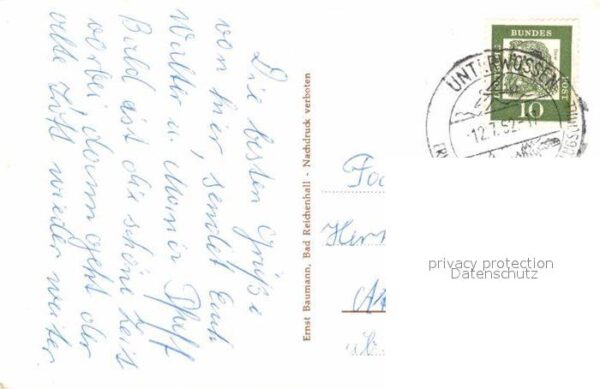 Die besten Grüße
von hier, sendet Euch
Walter u.
Bald ist die schöne Zeit
vorbei, dann geht der
alte wieder weiter
Ernst Baumann, Bad Reichenhall - Nachdruck verboten
BUNDES
POST
10
UNTERWÖSSEN
12.7.62-17
Herr
privacy protection
Datenschutz